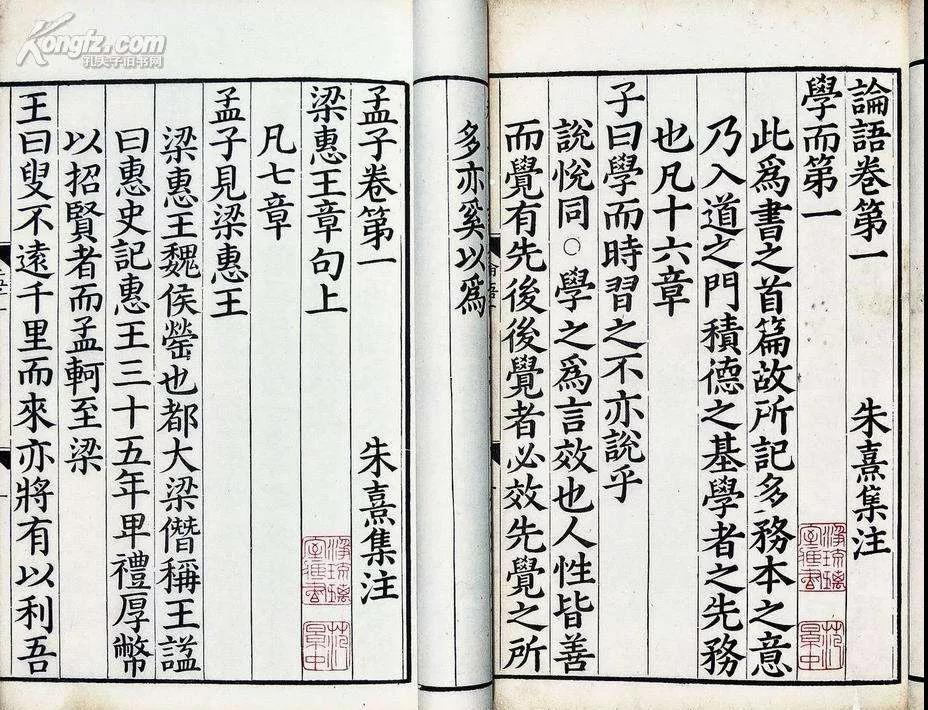 論語卷第一 朱熹集注
學而第一
此爲書之首篇故所記多務本之意
乃入道之門積德之基學者之先務
也凡十六章
子曰學而時習之不亦說乎
說悅同○學之爲言效也人性皆善
而覺有先後後覺者必效先覺之所
多亦奚以爲
孟子卷第一 朱熹集注
梁惠王章句上
凡七章
孟子見梁惠王
梁惠王魏侯罃也都大梁僭稱王謚
曰惠史記惠王三十五年卑禮厚幣
以招賢者而孟軻至梁
王曰叟不遠千里而來亦將有以利吾
Kongfz.com
孔夫子旧书网